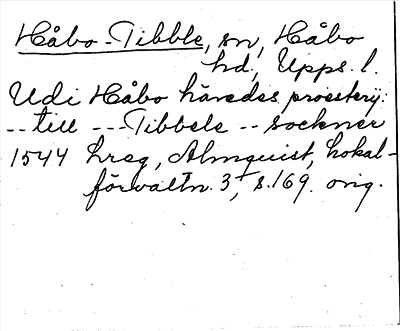 Håbo-Tibble, sn, Håbo
hd., Upps. l.
Udi Håbo häredes prosterij:
-- till --- Tibbele -- sockner
1544 hreg, Almquist, Lokal-
förvaltn. 3, s. 169. orig.